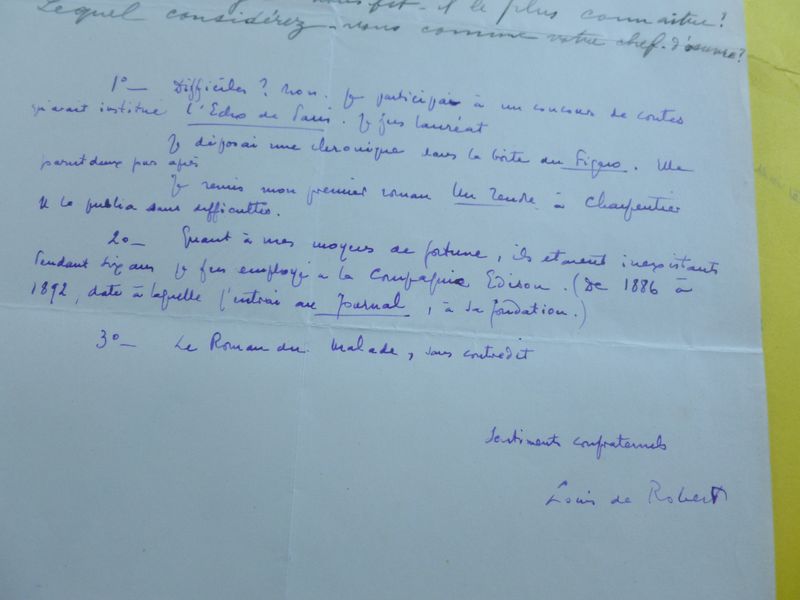 fit-il le plus connaître?
Lequel considérez-vous comme votre chef-d'œuvre?
1o— Difficiles? Non. Je participai à un concours de contes
qu'avait institué l'Echo de Paris. Je fus lauréat
Je déposai une chronique dans la boîte du Figaro. Elle
parut deux jours après
Je remis mon premier roman Un Tendre à Charpentier
Il le publia sans difficultés.
2o— Quant à mes moyens de fortune, ils étaient inexistants
Pendant six ans je fus employé à la Compagnie Edison. (De 1886 à
1892, date à laquelle j'entrai au Journal, à sa fondation.)
3o— Le Roman du Malade, sans contredit
Sentiments confraternels
Louis de Robert